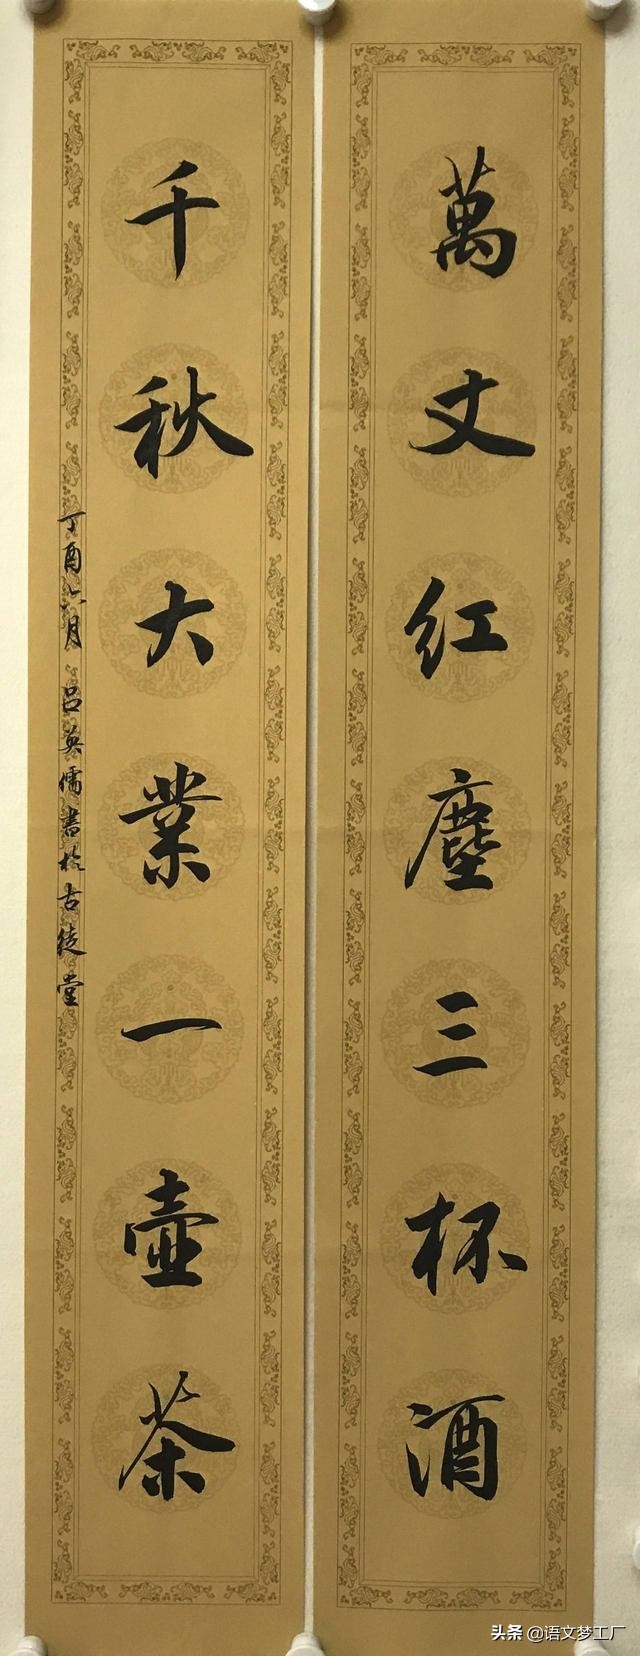 萬丈红塵三杯酒
千秋大業一壺茶
丁酉六月 吕英儒書於古徒堂
头条 @语文梦工厂